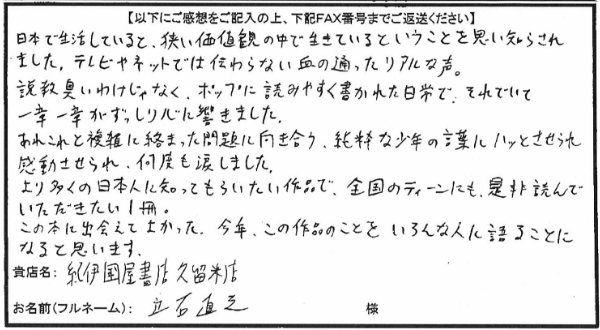 【以下にご感想をご記入の上、下記FAX番号までご返送ください】
日本で生活していると、狭い価値観の中で生きているということを思い知らされ
ました。テレビやネットでは伝わらない血の通ったリアルな声。
説教臭いわけじゃなく、ポップに読みやすく書かれた日常で、それでいて
一章一章がずっしり心に響きました。
あれこれと複雑に絡まった問題に向き合う、純粋な少年の言葉にハッとさせられ
感動させられ、何度も涙しました。
より多くの日本人に知ってもらいたい作品で、全国のティーンにも、是非読んで
いただきたい1冊。
この本に出会えてよかった。今年、この作品のことをいろんな人に語ることに
なると思います。
貴店名：紀伊國屋書店久留米店
お名前(フルネーム)：立石直之 様